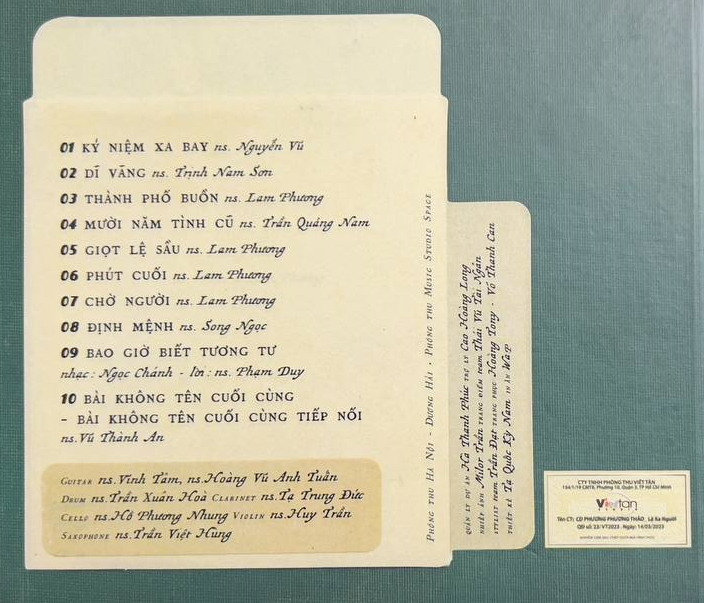 01 KỶ NIỆM XA BAY ns. Nguyễn Vũ
02 DĨ VÃNG ns. Trịnh Nam Sơn
03 THÀNH PHỐ BUỒN ns. Lam Phương
04 MƯỜI NĂM TÌNH CŨ ns. Trần Quảng Nam
05 GIỌT LỆ SẦU ns. Lam Phương
06 PHÚT CUỐI ns. Lam Phương
07 CHỜ NGƯỜI ns. Lam Phương
08 ĐỊNH MỆNH ns. Song Ngọc
09 BAO GIỜ BIẾT TƯƠNG TƯ
nhạc: Ngọc Chánh - lời: ns. Phạm Duy
10 BÀI KHÔNG TÊN CUỐI CÙNG
- BÀI KHÔNG TÊN CUỐI CÙNG TIẾP NỐI
ns. Vũ Thành An
GUITAR ns.Vĩnh Tâm, ns.Hoàng Vũ Anh Tuấn
DRUM ns.Trần Xuân Hoà CLARINET ns.Tạ Trung Đức
CELLO ns.Hồ Phương Nhung VIOLIN ns.Huy Trần
SAXOPHONE ns.Trần Việt Hùng
PHÒNG THU HÀ NỘI - DƯƠNG HẢI - PHÒNG THU MUSIC STUDIO SPACE
QUẢN LÝ DỰ ÁN Hà Thanh Phúc TRỢ LÝ Cao Hoàng Long
NHIẾP ẢNH Milor Trần TRANG ĐIỂM team Thái Vũ Tài Ngân
STYLIST team Trần Đạt TRANG PHỤC Hoàng Tony - Võ Thanh Can
THIẾT KẾ Tạ Quốc Kỳ Nam IN ẤN W.A.P
CTY TNHH PHÒNG THU VIẾT TÂN
Viettan
Tên CT: CD PHƯƠNG PHƯƠNG THẢO _ Lệ Xa Người
QĐ số: 23/VT2023 . Ngày: 14/03/2023